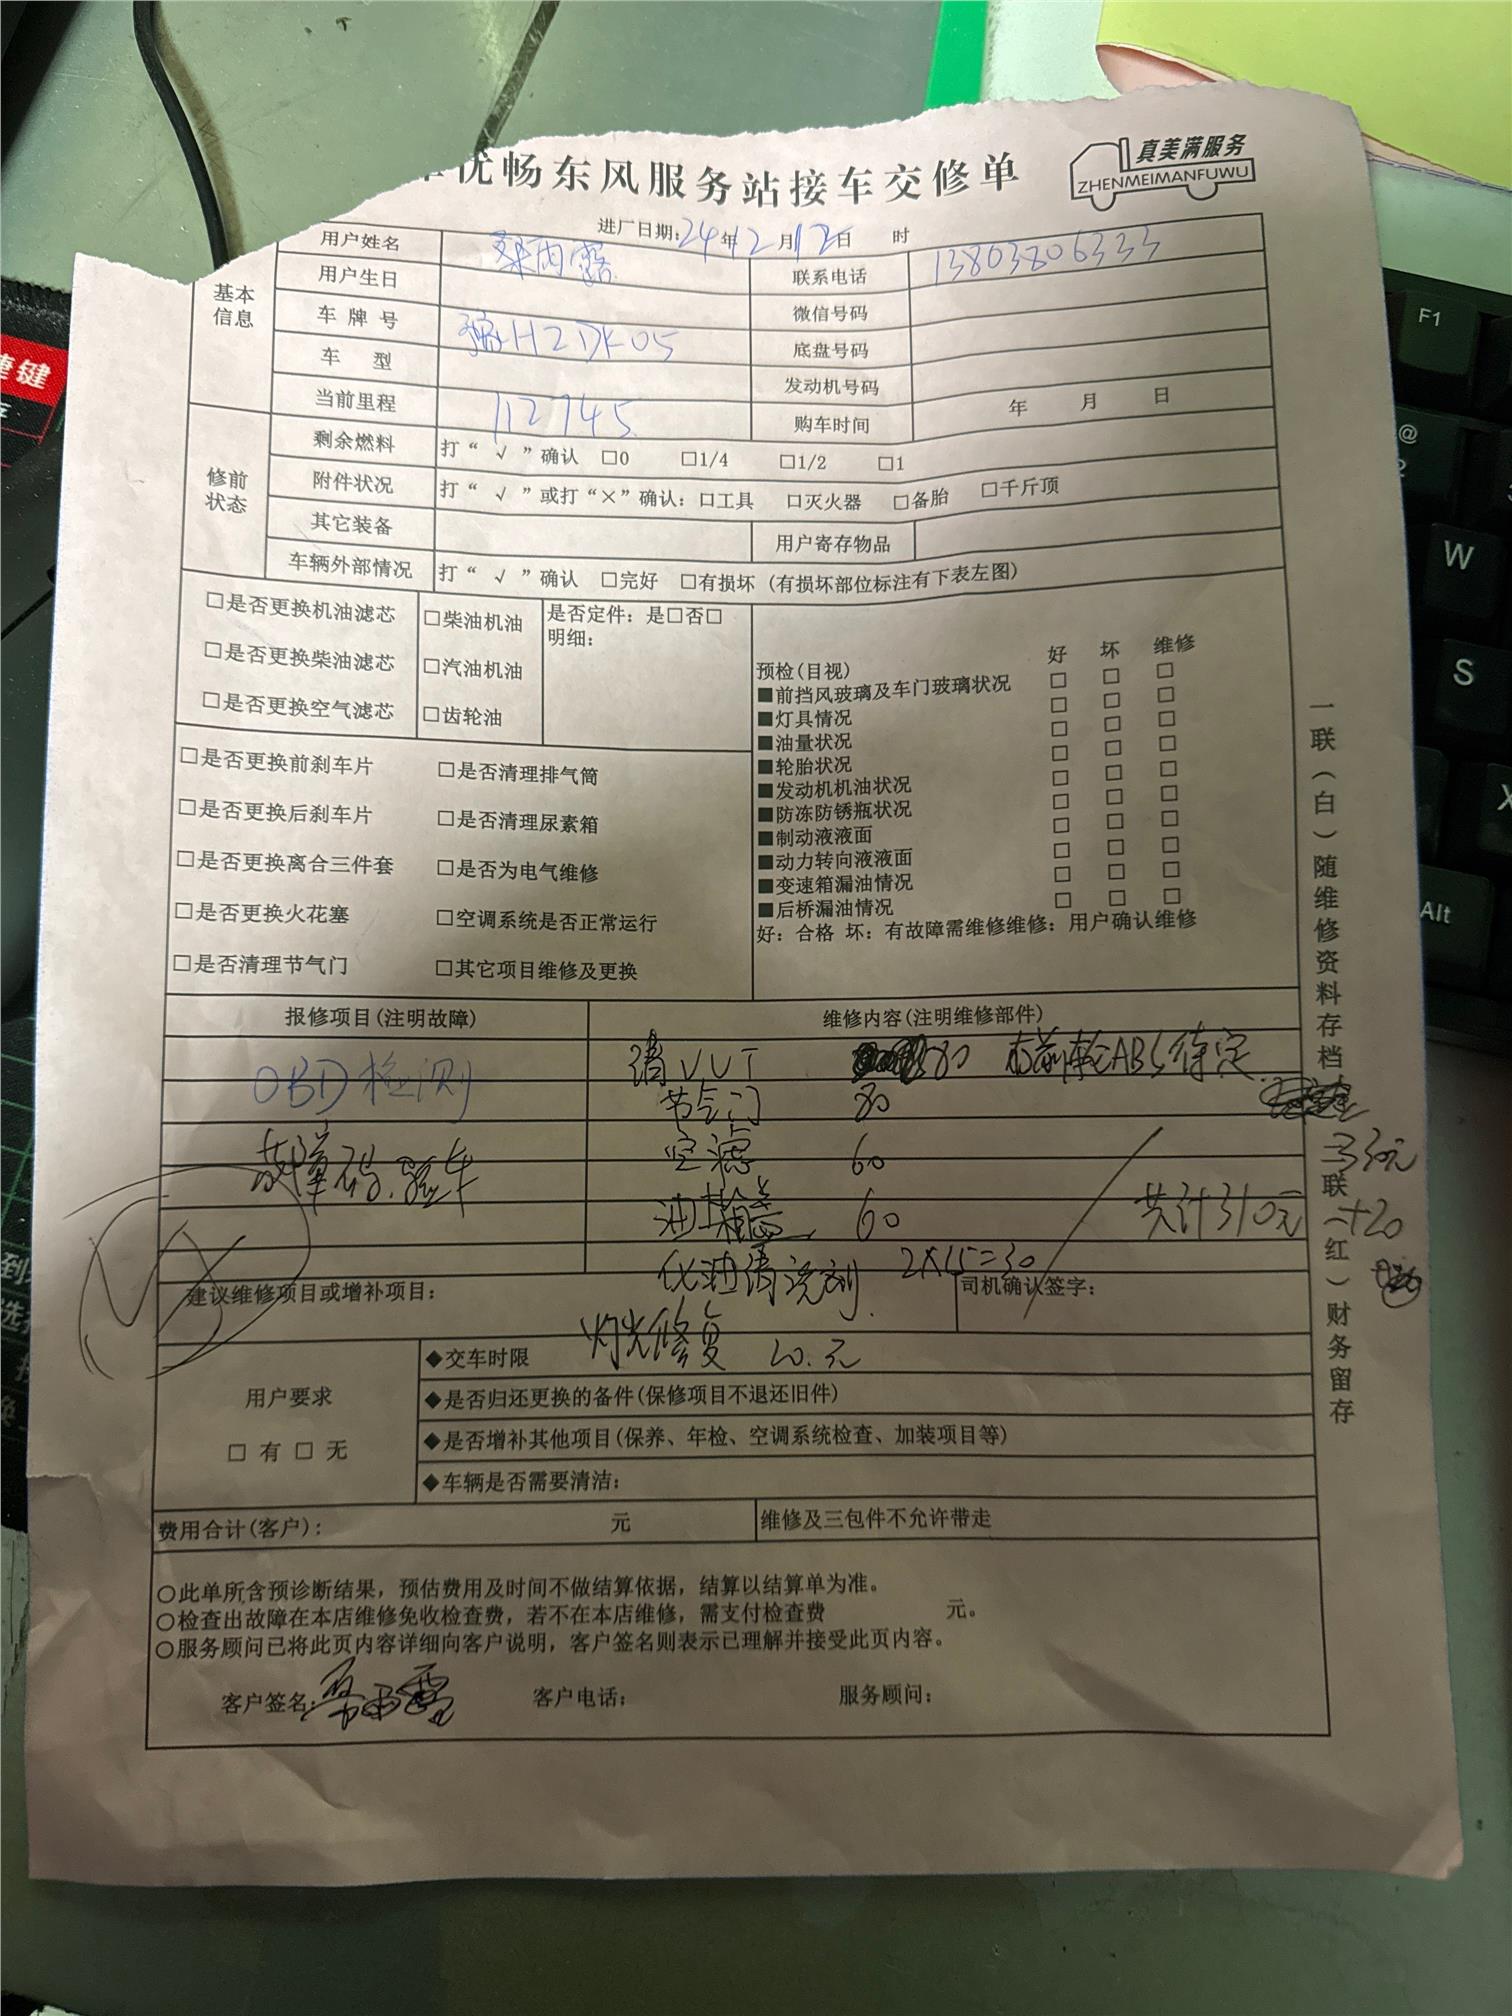 优畅东风服务站接车交修单
真美满服务
ZHENMEIMANFUWU
进厂日期:24年12月12日 时
基本信息
用户姓名 桑雨露 联系电话 13803806333
用户生日 微信号码
车牌号 豫H2DK05 底盘号码
车型 发动机号码
当前里程 112745 购车时间 年 月 日
修前状态
剩余燃料 打“√”确认 □0 □1/4 □1/2 □1
附件状况 打“√”或打“×”确认:□工具 □灭火器 □备胎 □千斤顶
其它装备 用户寄存物品
车辆外部情况 打“√”确认 □完好 □有损坏(有损坏部位标注有下表左图)
□是否更换机油滤芯 □柴油机油 是否定件:是□否□
明细:
□是否更换柴油滤芯 □汽油机油
□是否更换空气滤芯 □齿轮油
□是否更换前刹车片 □是否清理排气筒
□是否更换后刹车片 □是否清理尿素箱
□是否更换离合三件套 □是否为电气维修
□是否更换火花塞 □空调系统是否正常运行
□是否清理节气门 □其它项目维修及更换
预检(目视) 好 坏 维修
■前挡风玻璃及车门玻璃状况 □ □ □
■灯具情况 □ □ □
■油量状况 □ □ □
■轮胎状况 □ □ □
■发动机机油状况 □ □ □
■防冻防锈瓶状况 □ □ □
■制动液液面 □ □ □
■动力转向液液面 □ □ □
■变速箱漏油情况 □ □ □
■后桥漏油情况 □ □ □
好:合格 坏:有故障需维修维修:用户确认维修
报修项目(注明故障) 维修内容(注明维修部件)
OBD检测 清VVT 80 右前轮ABS待定
节气门 80
故障码.验车 空滤 60 330元
油箱盖 60 共计310元 +20
化油清洗剂 2×15=30
建议维修项目或增补项目: 司机确认签字:
灯光修复 20.元
用户要求
□有□无
◆交车时限
◆是否归还更换的备件(保修项目不退还旧件)
◆是否增补其他项目(保养、年检、空调系统检查、加装项目等)
◆车辆是否需要清洁:
费用合计(客户): 元 维修及三包件不允许带走
○此单所含预诊断结果,预估费用及时间不做结算依据,结算以结算单为准。
○检查出故障在本店维修免收检查费,若不在本店维修,需支付检查费 元。
○服务顾问已将此页内容详细向客户说明,客户签名则表示已理解并接受此页内容。
客户签名:桑雨露 客户电话: 服务顾问:
一联(白)随维修资料存档 二联(红)财务留存
捷键
F1
@
2
W
S
X
Alt